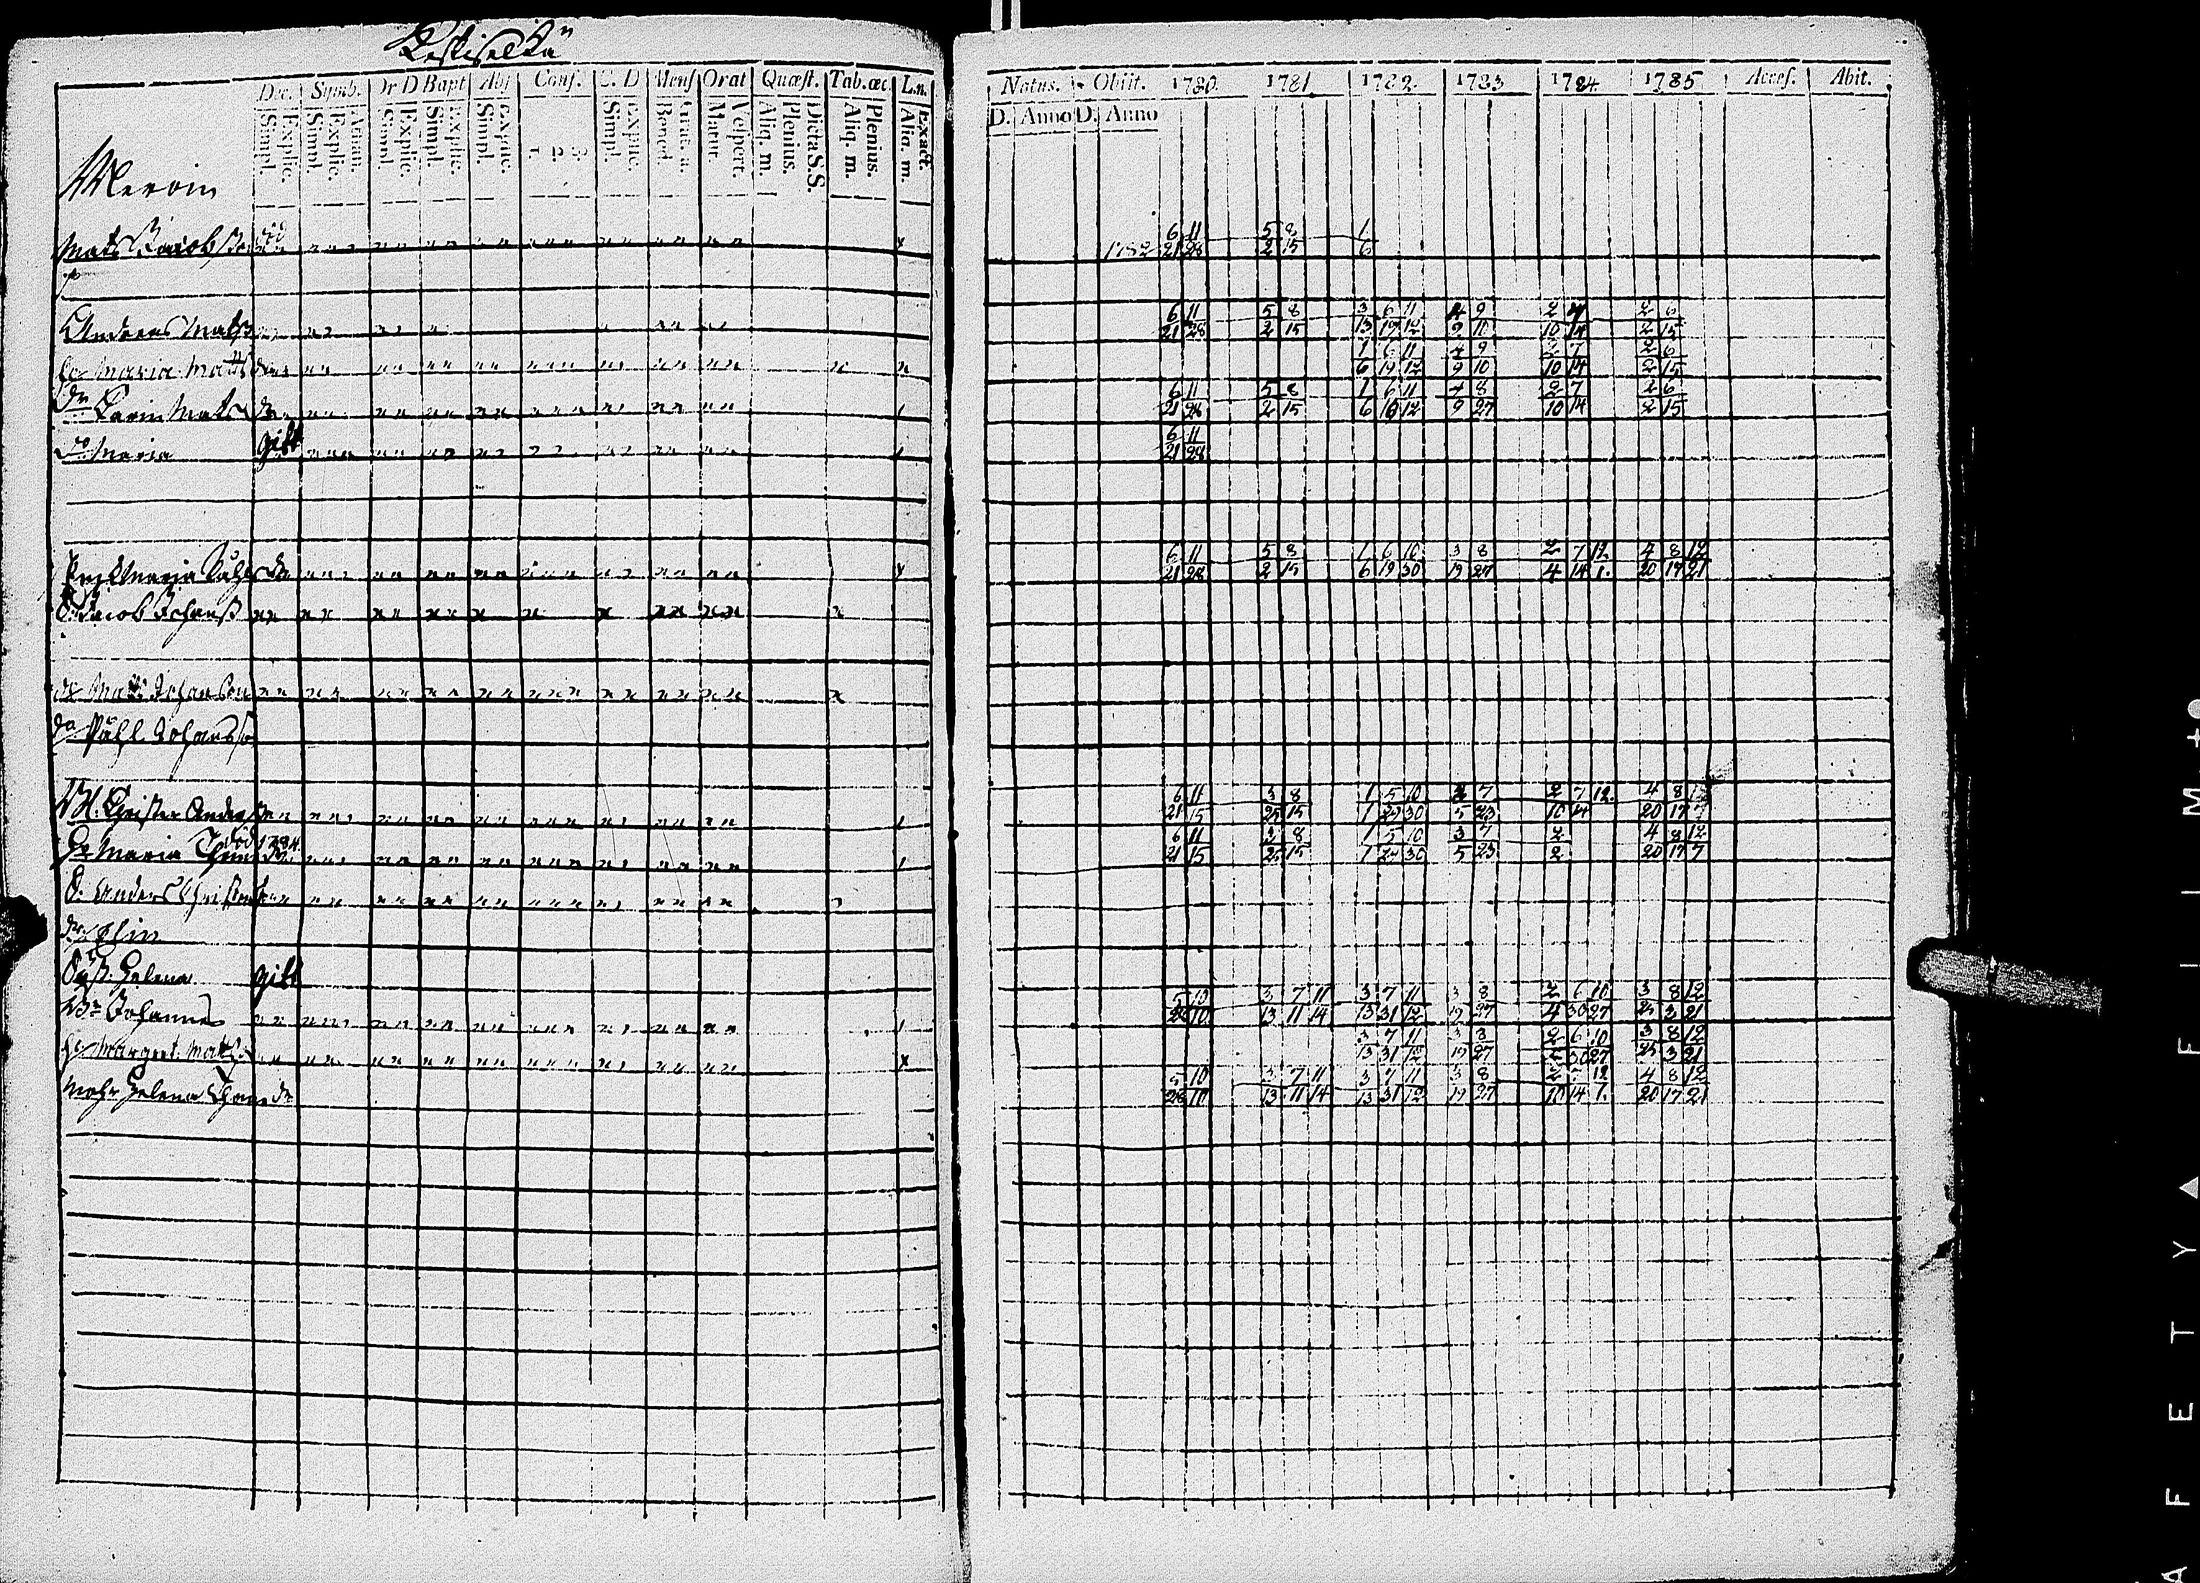 Dec. Symb. Or D Bapt Abs Conf. C. D Mens Orat Quæst. Tab. œc. L.n.
Explic. Simpl. Athan. Explic. Simpl. Explic. Simpl. Explic. Simpl. Explic. Simpl. 3. 2. 1. Explic. Simpl. Grat. a. Bened. Vespert. Matut. Dicta S.S. Plenius. Aliq. m. Plenius. Aliq. m. Exact. Aliq. m.
Meroin
Mats Jacobsson död
Anders Matss
hu Maria Matts dr
dr Karin Mats dr
dr Maria gift
Enk Maria Påhls dr
S. Jacob Johanss
dr Matts Johansson
dr Påhl Johansso
Bl. Christer Anders
Hu Maria Thom dr död 1784.
S. Anders Christers
dr Elin
Syst. Helena gift
Br Johannes
hu Margret Matts
Modr Helena Thom dr
Natus. Obiit. 1780. 1781. 1782. 1783 1784. 1785 Acces. Abit.
D. Anno D. Anno
6 11 5 8 1
1782 21 28 2 15 6
6 11 5 8 3 6 11 4 9 2 7 2 6
21 28 2 15 13 19 12 9 10 10 14 2 15
1 6 11 4 9 2 7 2 6
6 19 12 9 10 10 14 2 15
6 11 5 8 1 6 11 4 8 2 7 2 6
21 28 2 15 6 19 12 9 27 10 14 2 15
6 11
21 28
6 11 5 8 1 6 10 3 8 2 7 12 4 8 12
21 28 2 15 6 19 30 19 27 4 14 1. 20 17 21
6 11 3 8 1 5 10 3 7 2 7 12. 4 8 12
21 15 25 15 1 29 30 5 23 10 14 20 17 7
6 11 3 8 1 5 10 3 7 2 4 8 12
21 15 25 15 1 29 30 5 23 2 20 17 7
5 10 3 7 11 3 7 11 3 8 2 6 10 3 8 12
28 10 13 11 14 13 31 12 19 27 4 30 27 25 3 21
3 7 11 3 8 2 6 10 3 8 12
13 31 12 19 27 2 30 27 25 3 21
5 10 3 7 11 3 7 11 3 8 2 7 12 4 8 12
28 10 13 11 14 13 31 12 19 27 10 14 1. 20 17 21
AFETY ▲ FILM